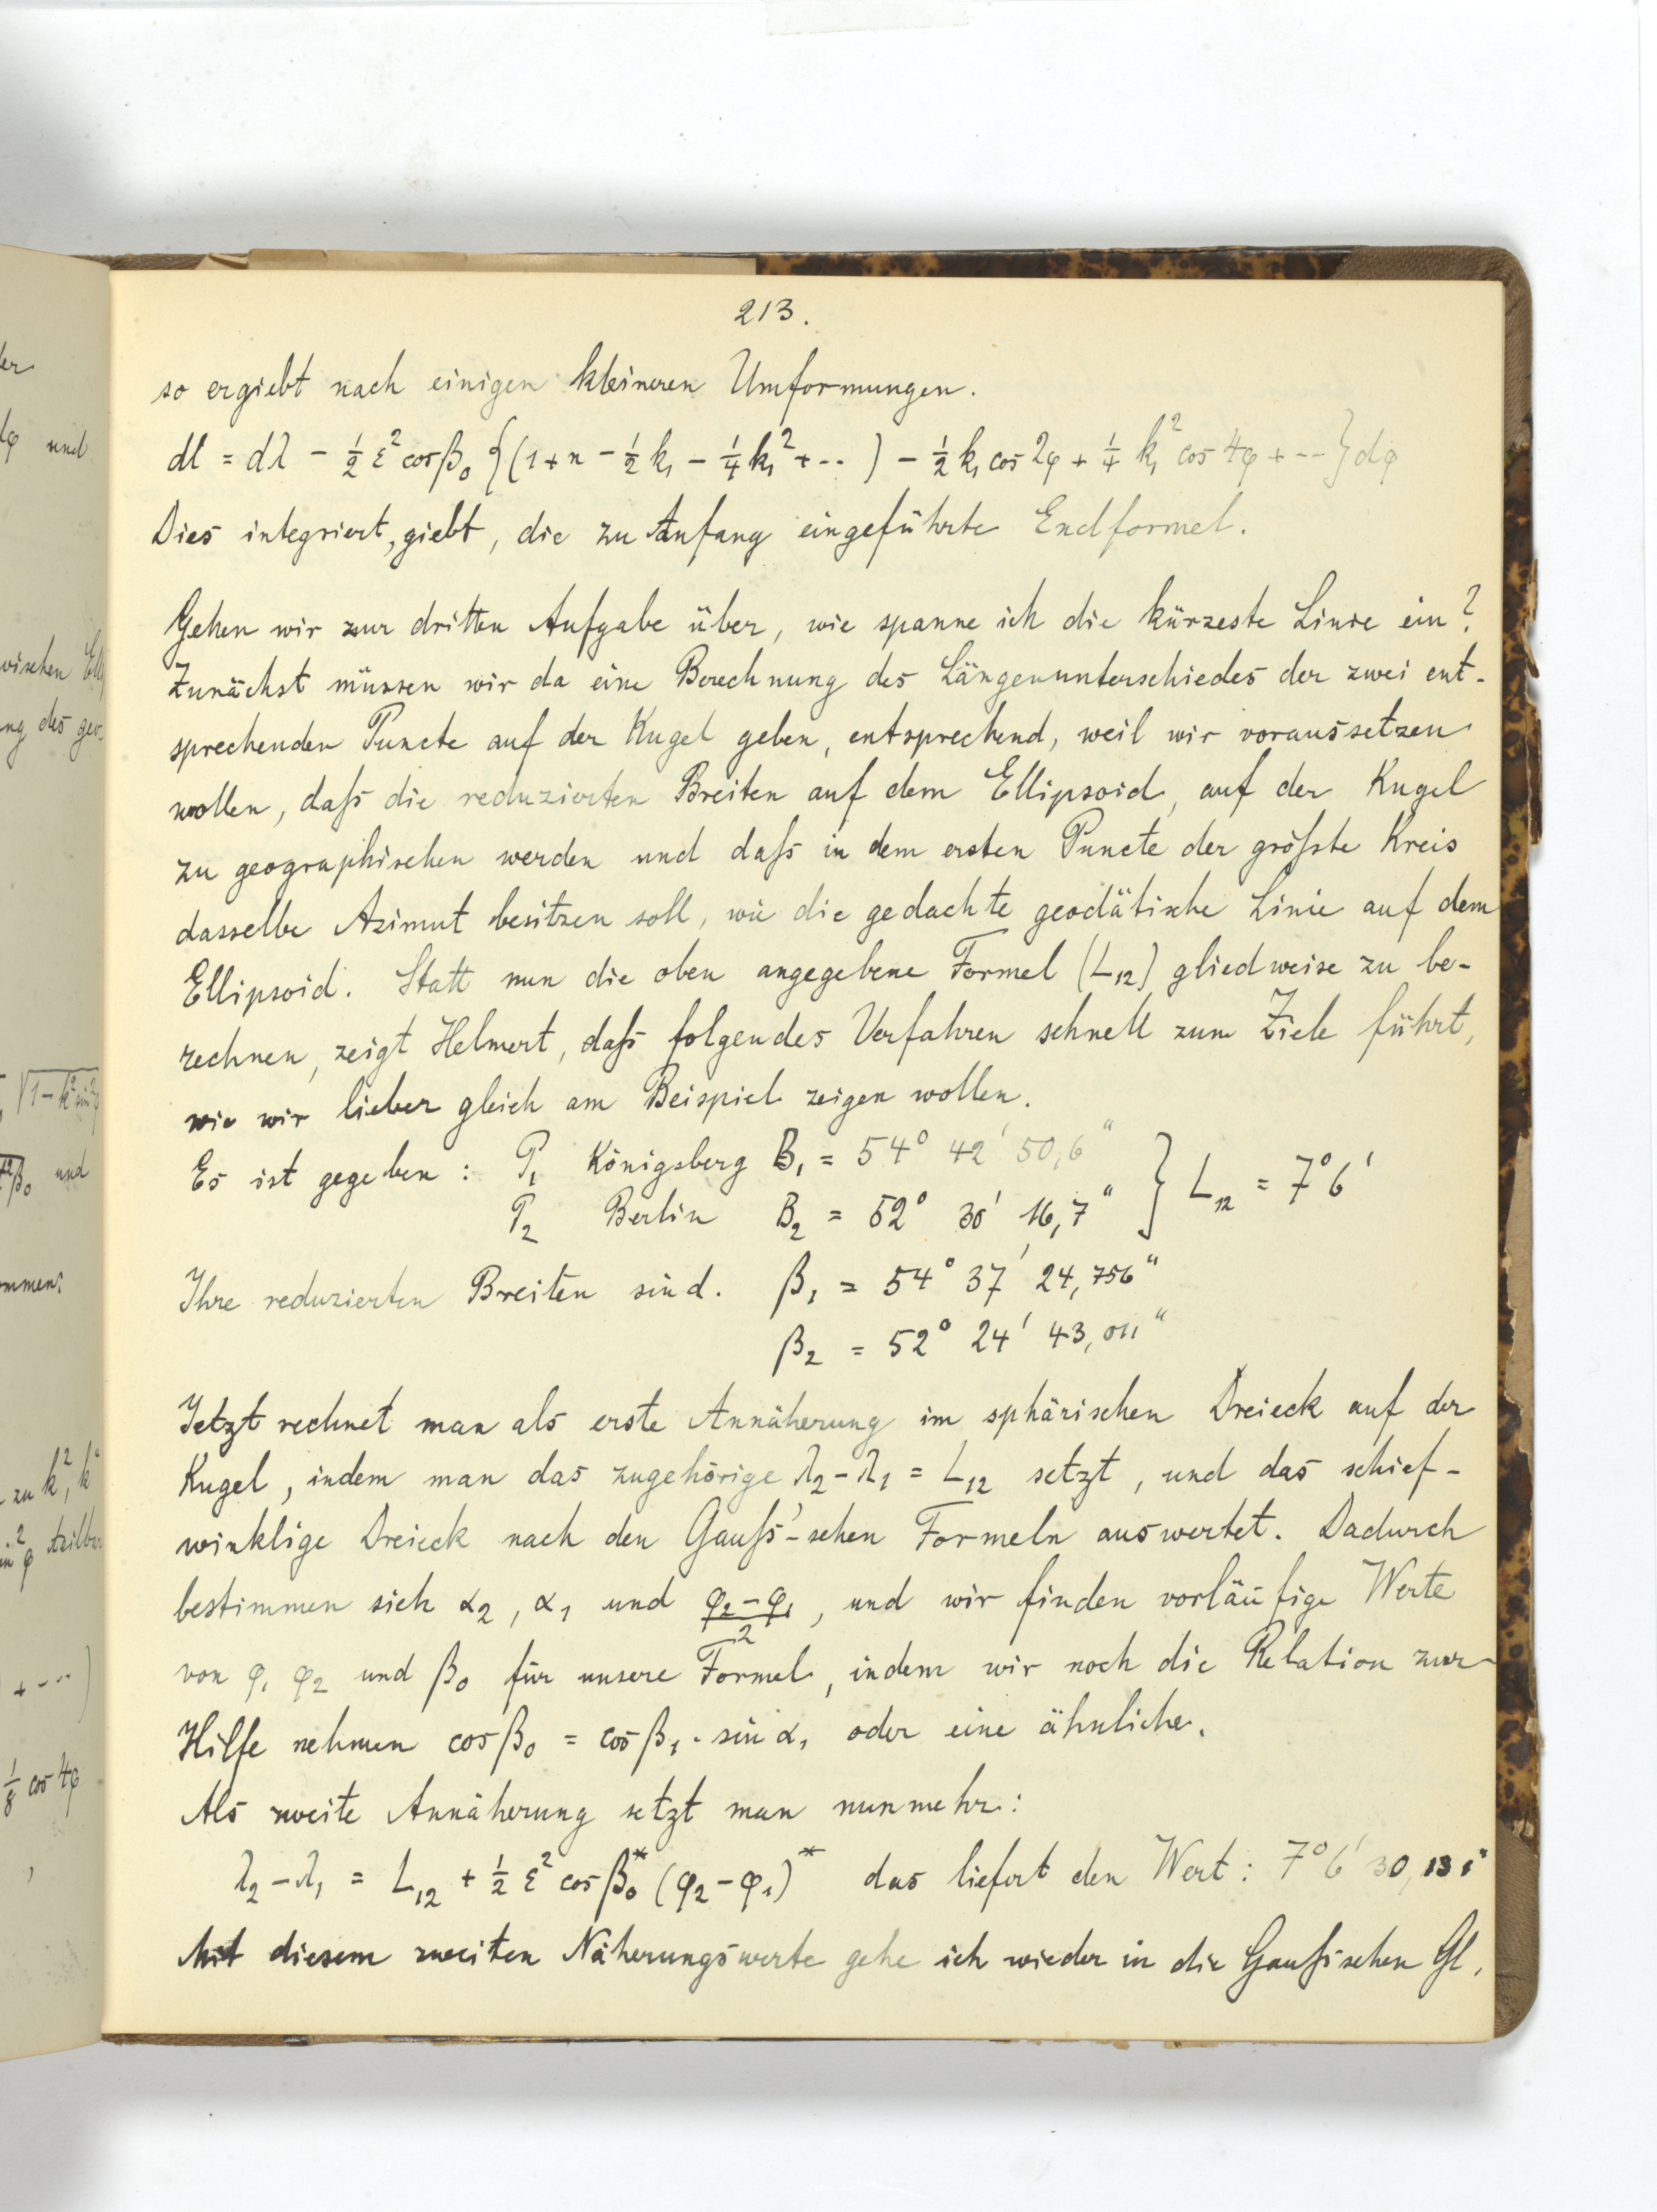 213.
so ergiebt nach einigen kleineren Umformungen.
dl = dλ - ½ ε² cosβ₀ {(1+n - ½ k₁ - ¼ k₁² + ·· ) - ½ k₁ cos 2φ + ¼ k₁² cos 4φ + ··· } dφ
Dies integriert, giebt, die zu Anfang eingeführte Endformel.
Gehen wir zur dritten Aufgabe über, wie spanne ich die kürzeste Linie ein?
Zunächst müssen wir da eine Berechnung des Längenunterschiedes der zwei ent-
sprechenden Puncte auf der Kugel geben, entsprechend, weil wir voraussetzen
wollen, daß die reduzierten Breiten auf dem Ellipsoid, auf der Kugel
zu geographischen werden und daß in dem ersten Puncte der größte Kreis
dasselbe Azimut besitzen soll, wie die gedachte geodätische Linie auf dem
Ellipsoid. Statt nun die oben angegebene Formel (L₁₂) gliedweise zu be-
rechnen, zeigt Helmert, daß folgendes Verfahren schnell zum Ziele führt,
wie wir lieber gleich am Beispiel zeigen wollen.
Es ist gegeben : P₁ Königsberg B₁ = 54° 42' 50,6" } L₁₂ = 7° 6'
P₂ Berlin B₂ = 52° 30' 16,7"
Ihre reduzierten Breiten sind. β₁ = 54° 37' 24,756"
β₂ = 52° 24' 43,011"
Jetzt rechnet man als erste Annäherung im sphärischen Dreieck auf der
Kugel, indem man das zugehörige λ₂ - λ₁ = L₁₂ setzt, und das schief-
winklige Dreieck nach den Gauß'-schen Formeln auswertet. Dadurch
bestimmen sich α₂, α₁ und (φ₂ - φ₁)/2, und wir finden vorläufige Werte
von φ₁ φ₂ und β₀ für unsere Formel, indem wir noch die Relation zur
Hilfe nehmen cos β₀ = cos β₁ · sin α₁ oder eine ähnliche.
Als zweite Annäherung setzt man nunmehr:
λ₂ - λ₁ = L₁₂ + ½ ε² cos β₀* (φ₂ - φ₁)* das liefert den Wert: 7° 6' 30,131"
Mit diesem zweiten Näherungswerte gehe ich wieder in die Gaußischen Gl.